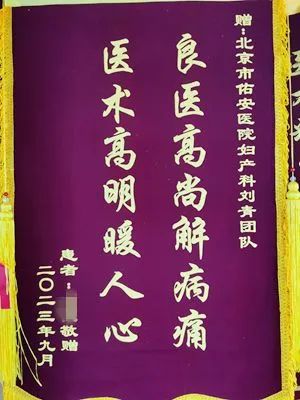 赠:北京市佑安医院妇产科刘青团队
良医高尚解病痛
医术高明暖人心
患者: 敬赠
二〇二三年九月